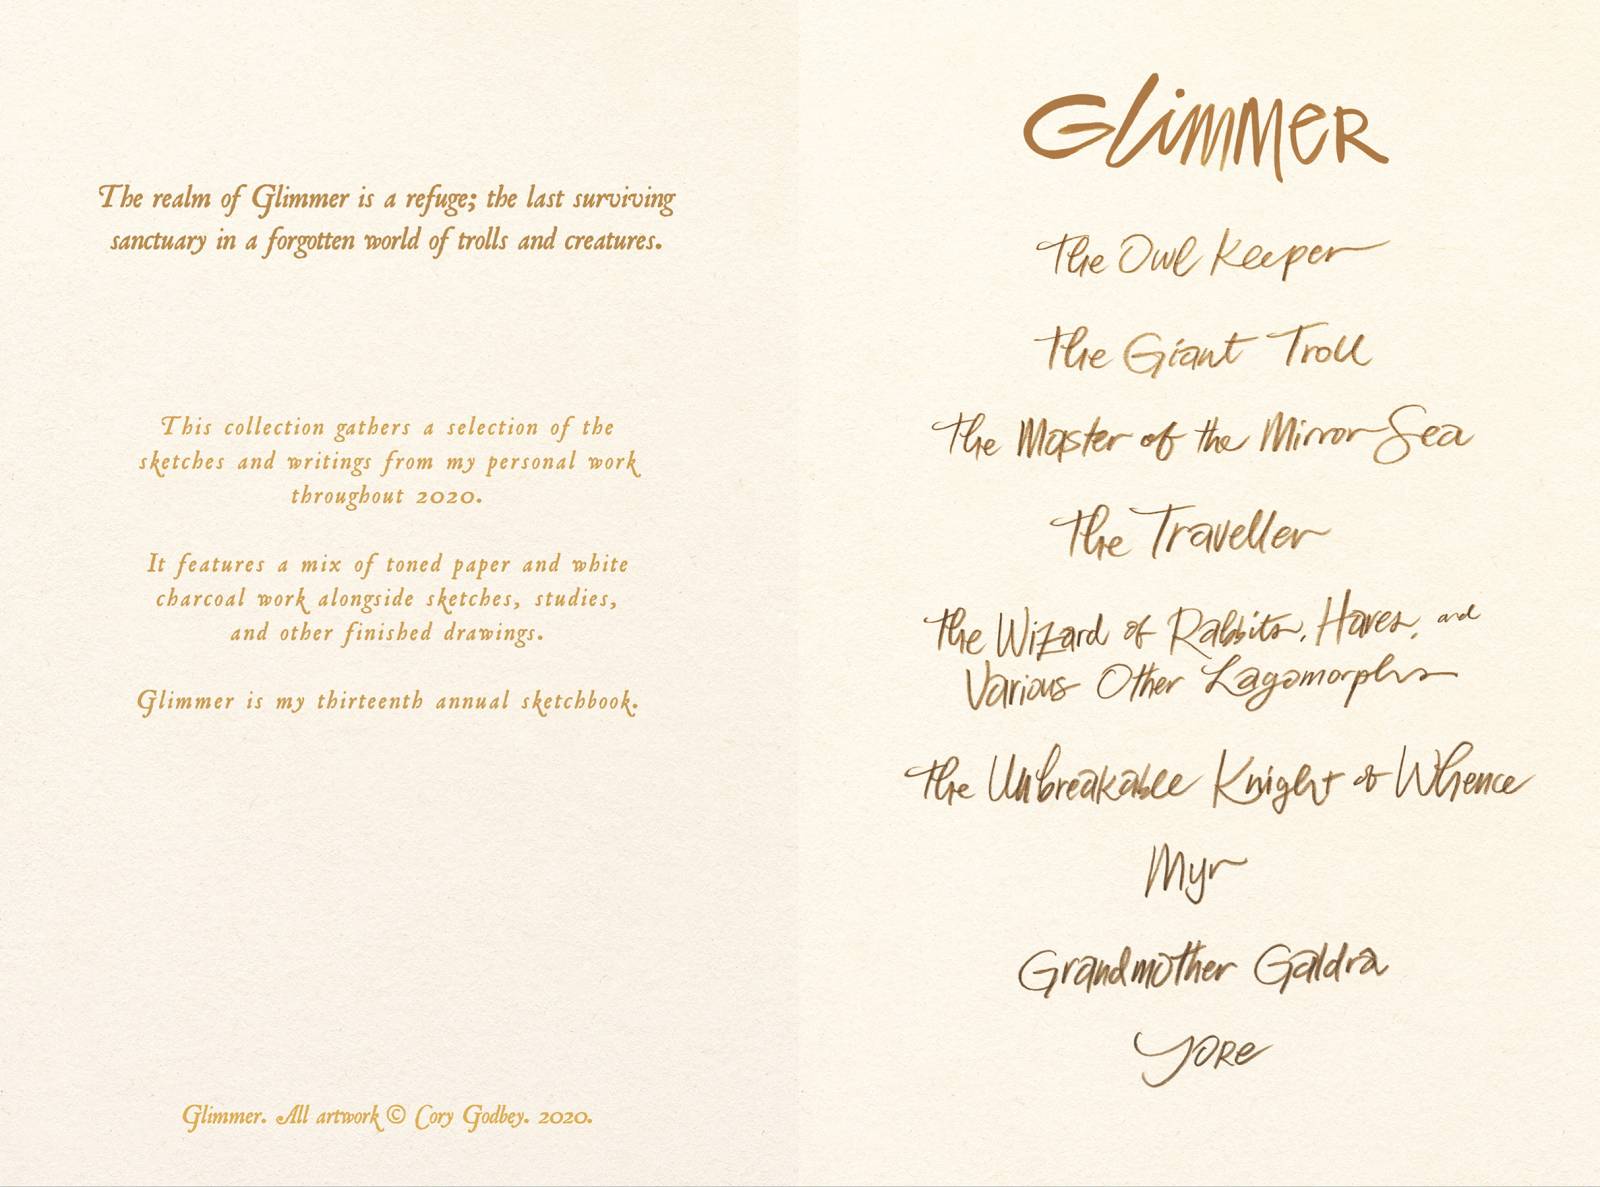 The realm of Glimmer is a refuge; the last surviving
sanctuary in a forgotten world of trolls and creatures.
This collection gathers a selection of the
sketches and writings from my personal work
throughout 2020.
It features a mix of toned paper and white
charcoal work alongside sketches, studies,
and other finished drawings.
Glimmer is my thirteenth annual sketchbook.
Glimmer. All artwork © Cory Godbey. 2020.
Glimmer
The Owl Keeper
The Giant Troll
The Master of the Mirror Sea
The Traveller
The Wizard of Rabbits, Hares, and
Various Other Lagomorphs
The Unbreakable Knight of Whence
Myr
Grandmother Galdra
Yore